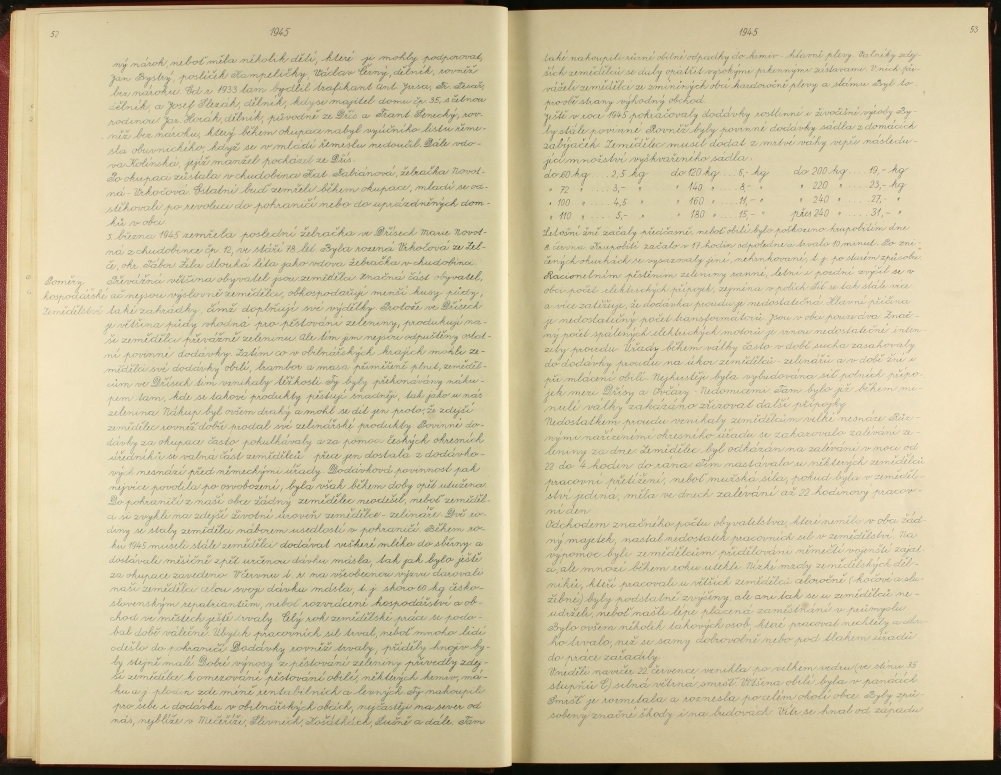 52
1945
ný nárok, neboť měla několik dětí, které ji mohly podporovat,
Jan Bystrý, poslíček Kampeličky, Václav Černý, dělník, rovněž
bez nároku. Od r. 1933 tam bydlil trafikant Ant. Jursa, Fr. Tesař,
dělník, a Josef Slezák, dělník, kdysi majitel domu čp. 35, s četnou
rodinou Jar. Horák, dělník, původně ze Dřís a Frant. Penecký, rov-
něž bez nároku, který během okupace nabyl vyúčního listu řeme-
sla obuvnického, když se v mládí řemeslu nedoučil. Dále vdo-
va Kolínská, jejíž manžel pocházel ze Dřís.
Po okupaci zůstala v chudobinci Kat. Fabiánová, žebračka Novot-
ná - Vrkočová. Ostatní buď zemřeli během okupace, mladí se od-
stěhovali po revoluci do pohraničí nebo do uprázdněných dom-
ků v obci.
5. března 1945 zemřela poslední žebračka v Dřísech Marie Novot-
ná z chudobince čp. 12, ve stáří 78 let. Byla rozená Vrkočová ze Žel-
če, okr. Tábor. Žila dlouhá léta jako vdova žebračka v chudobinci.
Poměry
hospodářské
Zemědělství
Převážná většina obyvatel jsou zemědělci. Značná část obyvatel,
ač nejsou výslovně zemědělci, obhospodařují menší kusy půdy,
také zahrádky, čímž doplňují své výdělky. Protože ve Dřísech
je většina půdy vhodná pro pěstování zeleniny, produkují na-
ši zemědělci převážně zeleninu. Ale tím jim nejsou odpuštěny ostat-
ní povinné dodávky. Zatím co v obilnářských krajích mohli ze-
mědělci své dodávky obilí, brambor a masa přiměřeně plnit, zeměděl-
cům ve Dřísech tím vznikaly těžkosti. Ty byly překonávány náku-
pem tam, kde se takové produkty pěstují snadněji, tak jako u nás
zelenina. Nákup byl ovšem drahý a mohl se dít jen proto, že zdejší
zemědělci rovněž dobře prodali své zelinářské produkty. Povinné do-
dávky za okupace často pokulhávaly a za pomoci českých okresních
úředníků se valná část zemědělců přece jen dostala z dodávko-
vých nesnází před německými úřady. Dodávková povinnost pak
nejvíce povolila po osvobození, byla však během doby opět utužena.
Do pohraničí z naší obce žádný zemědělec neodešel, neboť zeměděl-
ci si zvykli na zdejší životní úroveň zemědělce - zelináře. Dvě ro-
diny se staly zemědělci náborem usedlostí v pohraničí. Během ro-
ku 1945 museli stále zemědělci dodávat veškeré mléko do sběrny a
dostávali měsíčně zpět určenou dávku másla, tak jak bylo ještě
za okupace zavedeno. V červnu t. r. na všeobecnou výzvu darovali
naši zemědělci celou svoji dávku másla, t. j. skoro 60 kg česko-
slovenským repatriantům, neboť rozvrácené hospodářství a ob-
chod ve městech ještě trvaly. Celý rok zemědělské práce se podo-
bal době válečné. Úbytek pracovních sil trval, neboť mnoho lidí
odešlo do pohraničí. Dodávky rovněž trvaly, příděly hnojiv by-
ly stejně malé. Dobré výnosy z pěstování zeleniny přivedly zdej-
ší zemědělce k omezování pěstování obilí, některých krmiv, má-
ku a j. plodin zde méně rentabilních a levných. Ty nakoupili
pro sebe i dodávku v obilnářských obcích, nejčastěji na sever od
nás, nejblíže v Mečeříži, Slivních, Košátkách, Sušně a dále. Tam
53
1945
také nakoupili různé obilní odpadky do krmiv - hlavně plevy. Valníky zdej-
ších zemědělců se daly opatřit vysokými prkennými zástavami. V nich při-
váželi zemědělci ze zmíněných obcí každoročně plevy a slámu. Byl to
pro obě strany výhodný obchod.
Ještě v roce 1945 pokračovaly dodávky rostlinné i živočišné výroby. By-
ly stále povinné. Rovněž byly povinné dodávky sádla z domácích
zabijaček. Zemědělec musil dodat z mrtvé váhy vepře následu-
jící množství vyškvařeného sádla:
do 60 kg .... 2,5 kg do 120 kg ... 6,- kg do 200 kg .... 19,- kg
" 72 " .... 3,- " " 140 " .... 8,- " " 220 " .... 23,- kg
" 100 " .... 4,5 " " 160 " .... 11,- " " 240 " .... 27,- "
" 110 " .... 5,- " " 180 " .... 15,- " přes 240 " .... 31,- "
Letošní žně začaly předčasně, neboť obilí bylo poškozeno krupobitím dne
8. června. Krupobití začalo v 17 hodin odpoledne a trvalo 10 minut. Po zni-
čených okurkách se vysazovaly jiné, nehrnkované, t. j. po starém způsobu.
Racionelním pěstěním zeleniny ranné, letní i pozdní zvýšil se v
obci počet elektrických přípojek, zejména v polích. Síť se tak stále více
a více zatěžuje, že dodávka proudu je nedostatečná. Hlavní příčina
je nedostatečný počet transformátorů. Jsou v obci pouze dva. Znač-
ný počet spálených elektrických motorů je vinou nedostatečné inten-
zity proudu. Úřady během války často v době sucha zasahovaly
do dodávky proudu na úkor zemědělců - zelinářů a v době žní i
při mlácení obilí. Nejhustěji byla vybudována síť polních přípo-
jek mezi Dřísy a Ovčáry - Nedomicemi. Tam bylo již během mi-
nulé války zakázáno zřizovat další přípojky.
Nedostatkem proudu vznikaly zemědělcům velké nesnáze. Růz-
nými nařízeními okresního úřadu se zakazovalo zalévání ze-
leniny za dne. Zemědělec byl odkázán na zalévání v noci od
22 do 4 hodin do rána. Tím nastávalo u některých zemědělců
pracovní přetížení, neboť mužská síla, pokud byla v zeměděl-
ství jediná, měla ve dnech zalévání až 22 hodinový pracov-
ní den.
Odchodem značného počtu obyvatelstva, které nemělo v obci žád-
ný majetek, nastal nedostatek pracovních sil v zemědělství. Na
výpomoc byli zemědělcům přidělováni němečtí vojenští zajat-
ci, ale mnozí během roku utekli. Nízké mzdy zemědělských děl-
níků, kteří pracovali u větších zemědělců celoročně (hočové a slu-
žebné) byly podstatně zvýšeny, ale ani tak se u zemědělců ne-
udrželi, neboť našli lépe placená zaměstnání v průmyslu.
Bylo ovšem několik takových osob, které pracovat nechtěly a dlou-
ho trvalo, než se samy dobrovolně nebo pod tlakem úřadů
do práce zařadily.
V neděli navečer 22. července vznikla po velkém vedru (ve stínu 35
stupňů C) silná větrná smršť. Většina obilí byla v panácích.
Smršť je rozmetala a roznesla po celém okolí obce. Byly způ-
sobeny značné škody i na budovách. Vítr se hnal od západu